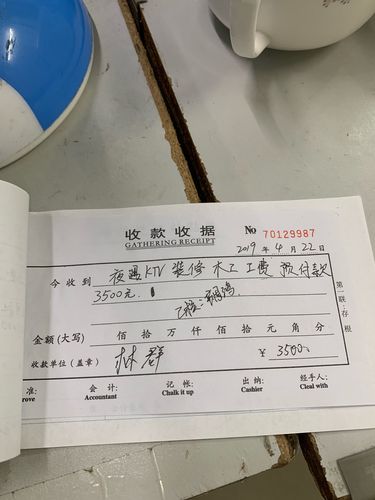 收款收据
GATHERING RECEIPT
No 70129987
2019年4月22日
今收到 夜遇KTV装修木工工费预付款
3500元.
金额(大写) 佰 拾 万 仟 佰 拾 元 角 分
收款单位(盖章) 林群 ¥ 3500
第一联:存根
准: 会 计: 记 帐: 出 纳: 经手人:
rove Accountant Chalk it up Cashier Cleal with